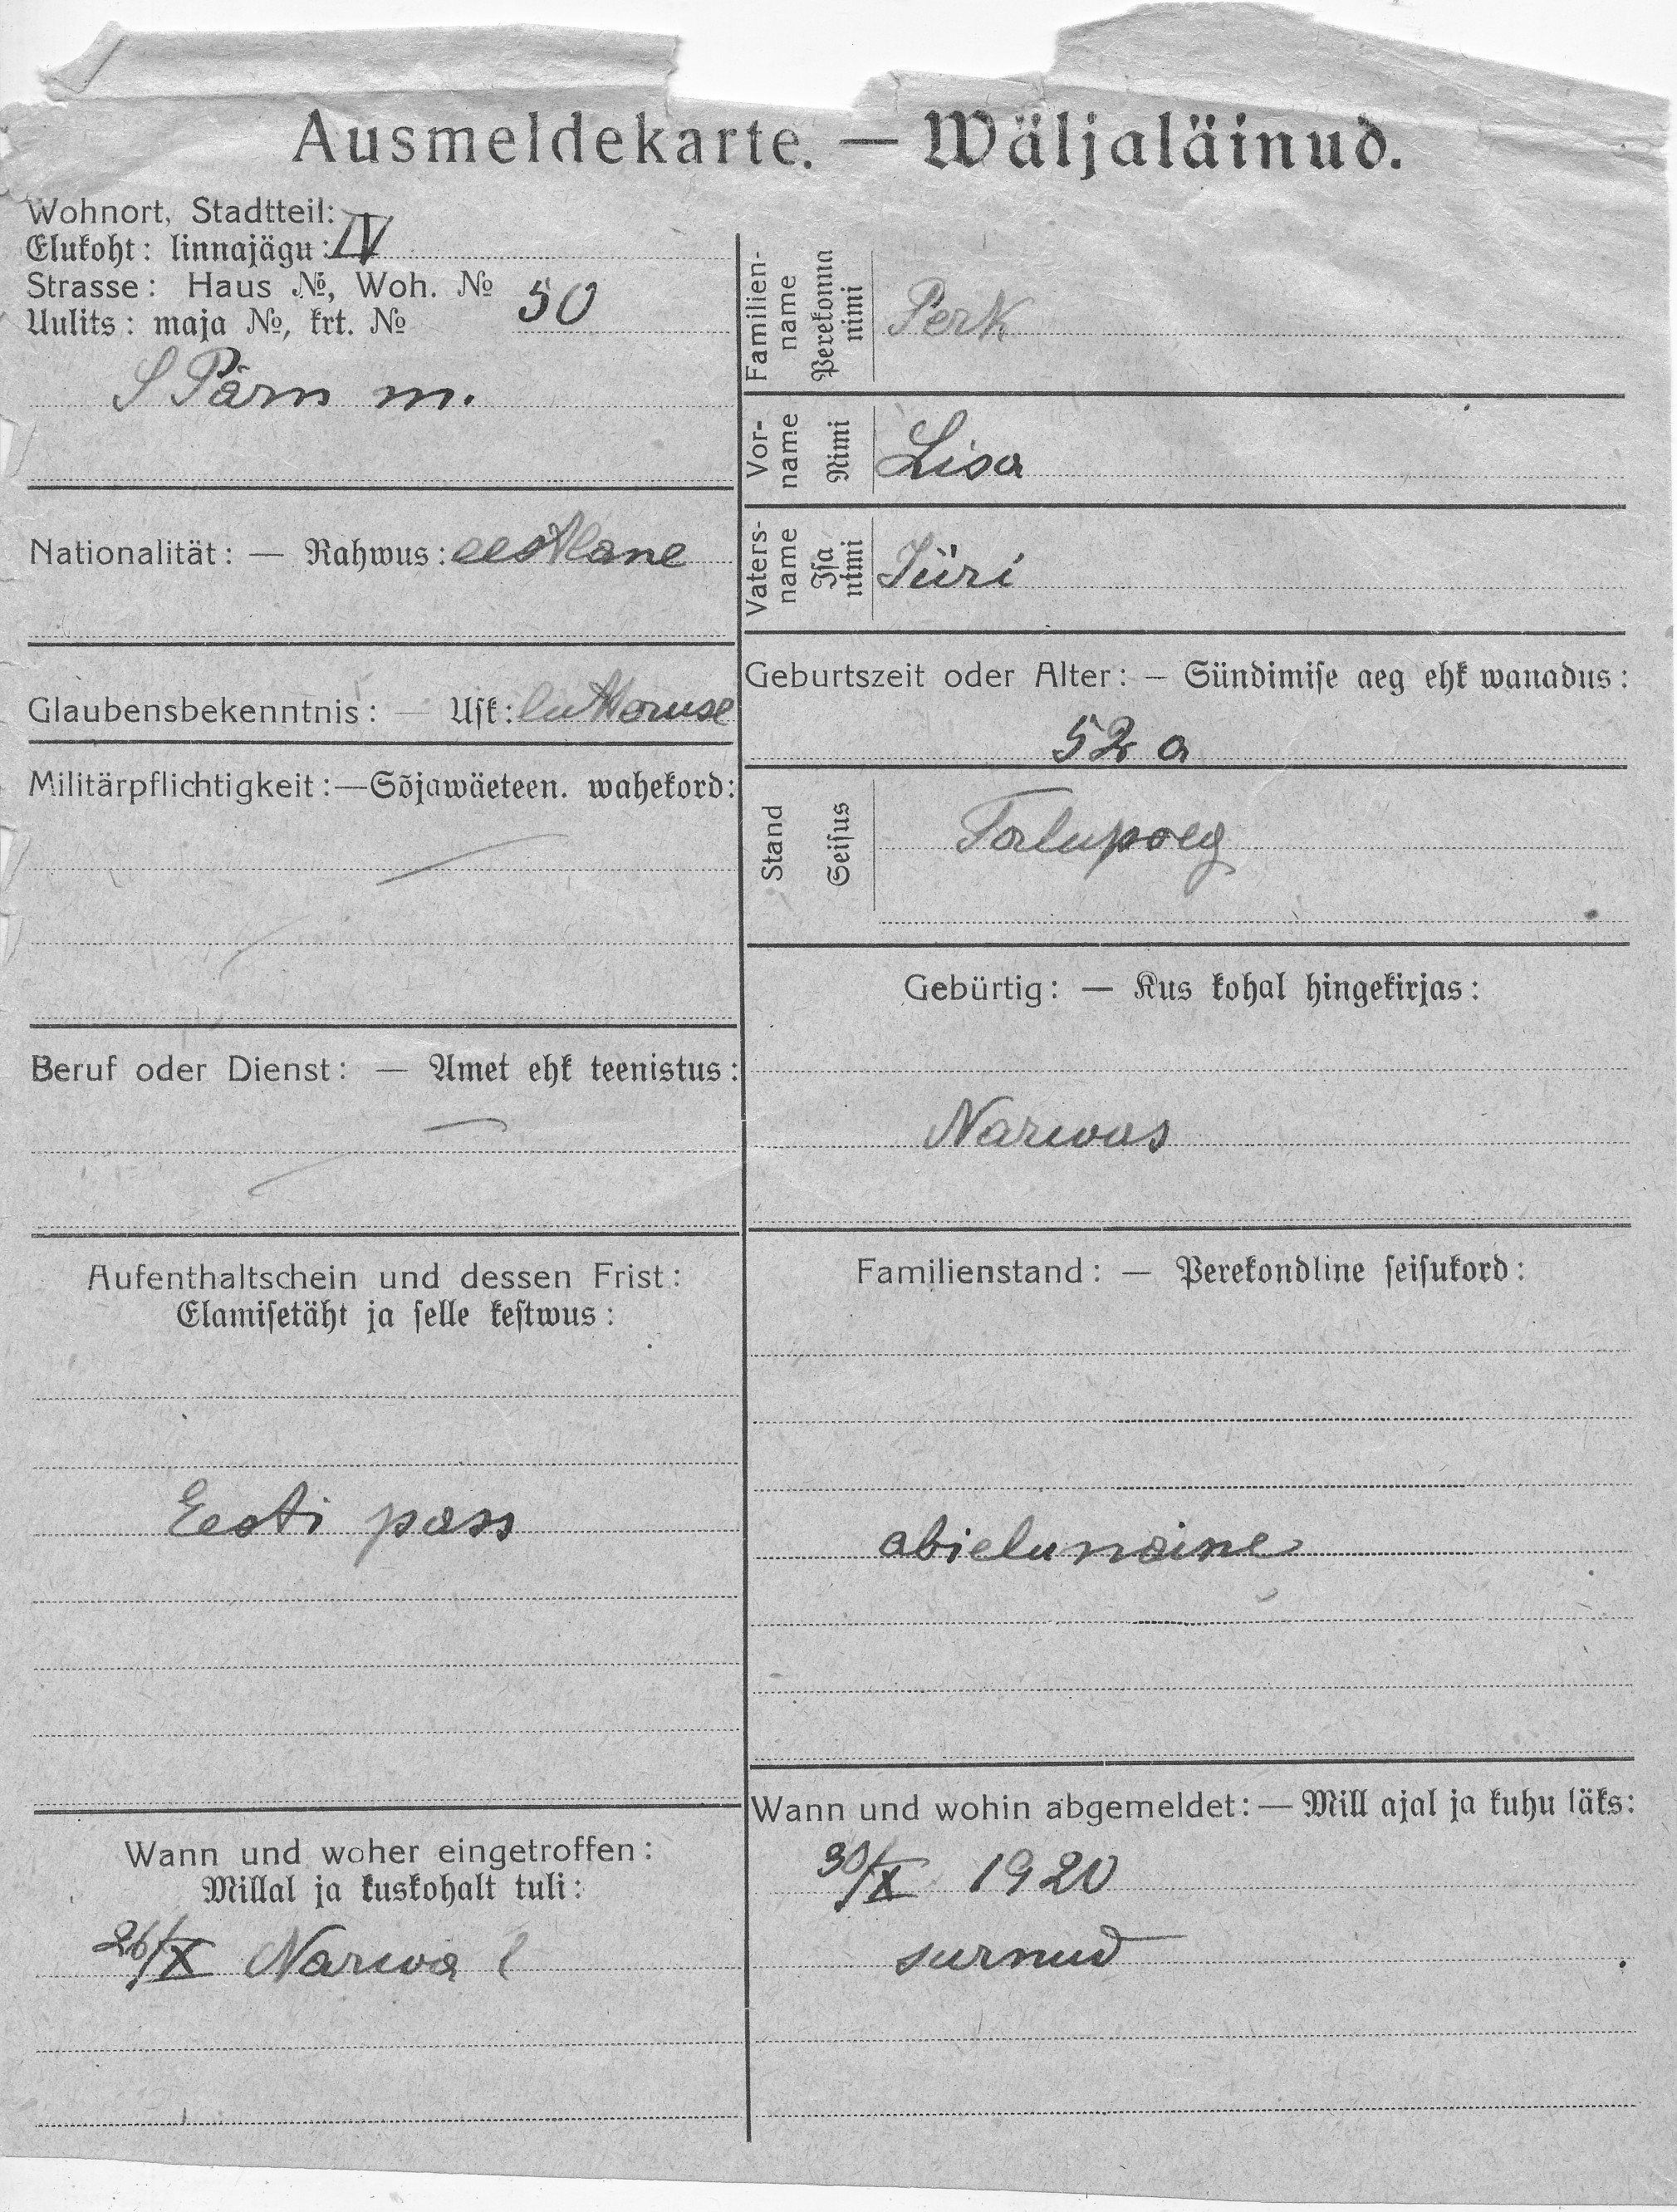 Ausmeldekarte. — Wäljaläinud.
Wohnort, Stadtteil:
Elukoht: linnajägu: IV
Strasse: Haus №, Woh. № 50
Uulits: maja №, krt. №
S Pärn m.
Nationalität: — Rahwus: eestlane
Glaubensbekenntnis: — Usk: lutteruse
Militärpflichtigkeit:—Sõjawäeteen. wahekord:
Beruf oder Dienst: — Amet ehk teenistus:
—
Aufenthaltschein und dessen Frist:
Elamisetäht ja selle kestwus:
Eesti pass
Wann und woher eingetroffen:
Millal ja kuskohalt tuli:
26/X Narwa l
Familien-
name
Perekonna
nimi
Perk
Vor-
name
Nimi
Lisa
Vaters-
name
Isa
nimi
Jüri
Geburtszeit oder Alter: — Sündimise aeg ehk wanadus:
52 a
Stand
Seisus
Talupoeg
Gebürtig: — Kus kohal hingekirjas:
Narwas
Familienstand: — Perekondline seisukord:
abielunaine
Wann und wohin abgemeldet:— Mill ajal ja kuhu läks:
30/X 1920
surnud